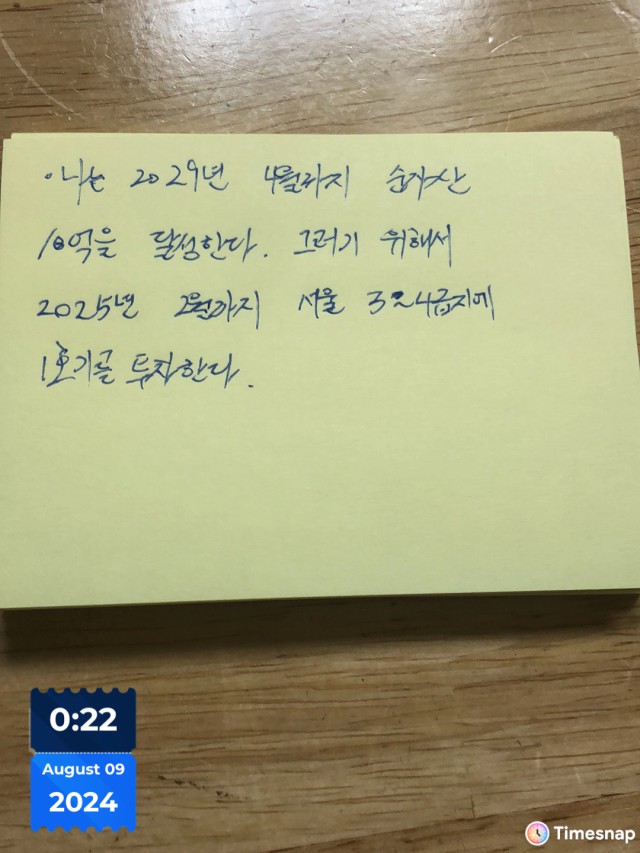 · 나는 2029년 4월까지 순자산
10억을 달성한다. 그러기 위해서
2025년 2월까지 서울 3~4급지에
1호기를 투자한다.
0:22
August 09
2024
Timesnap